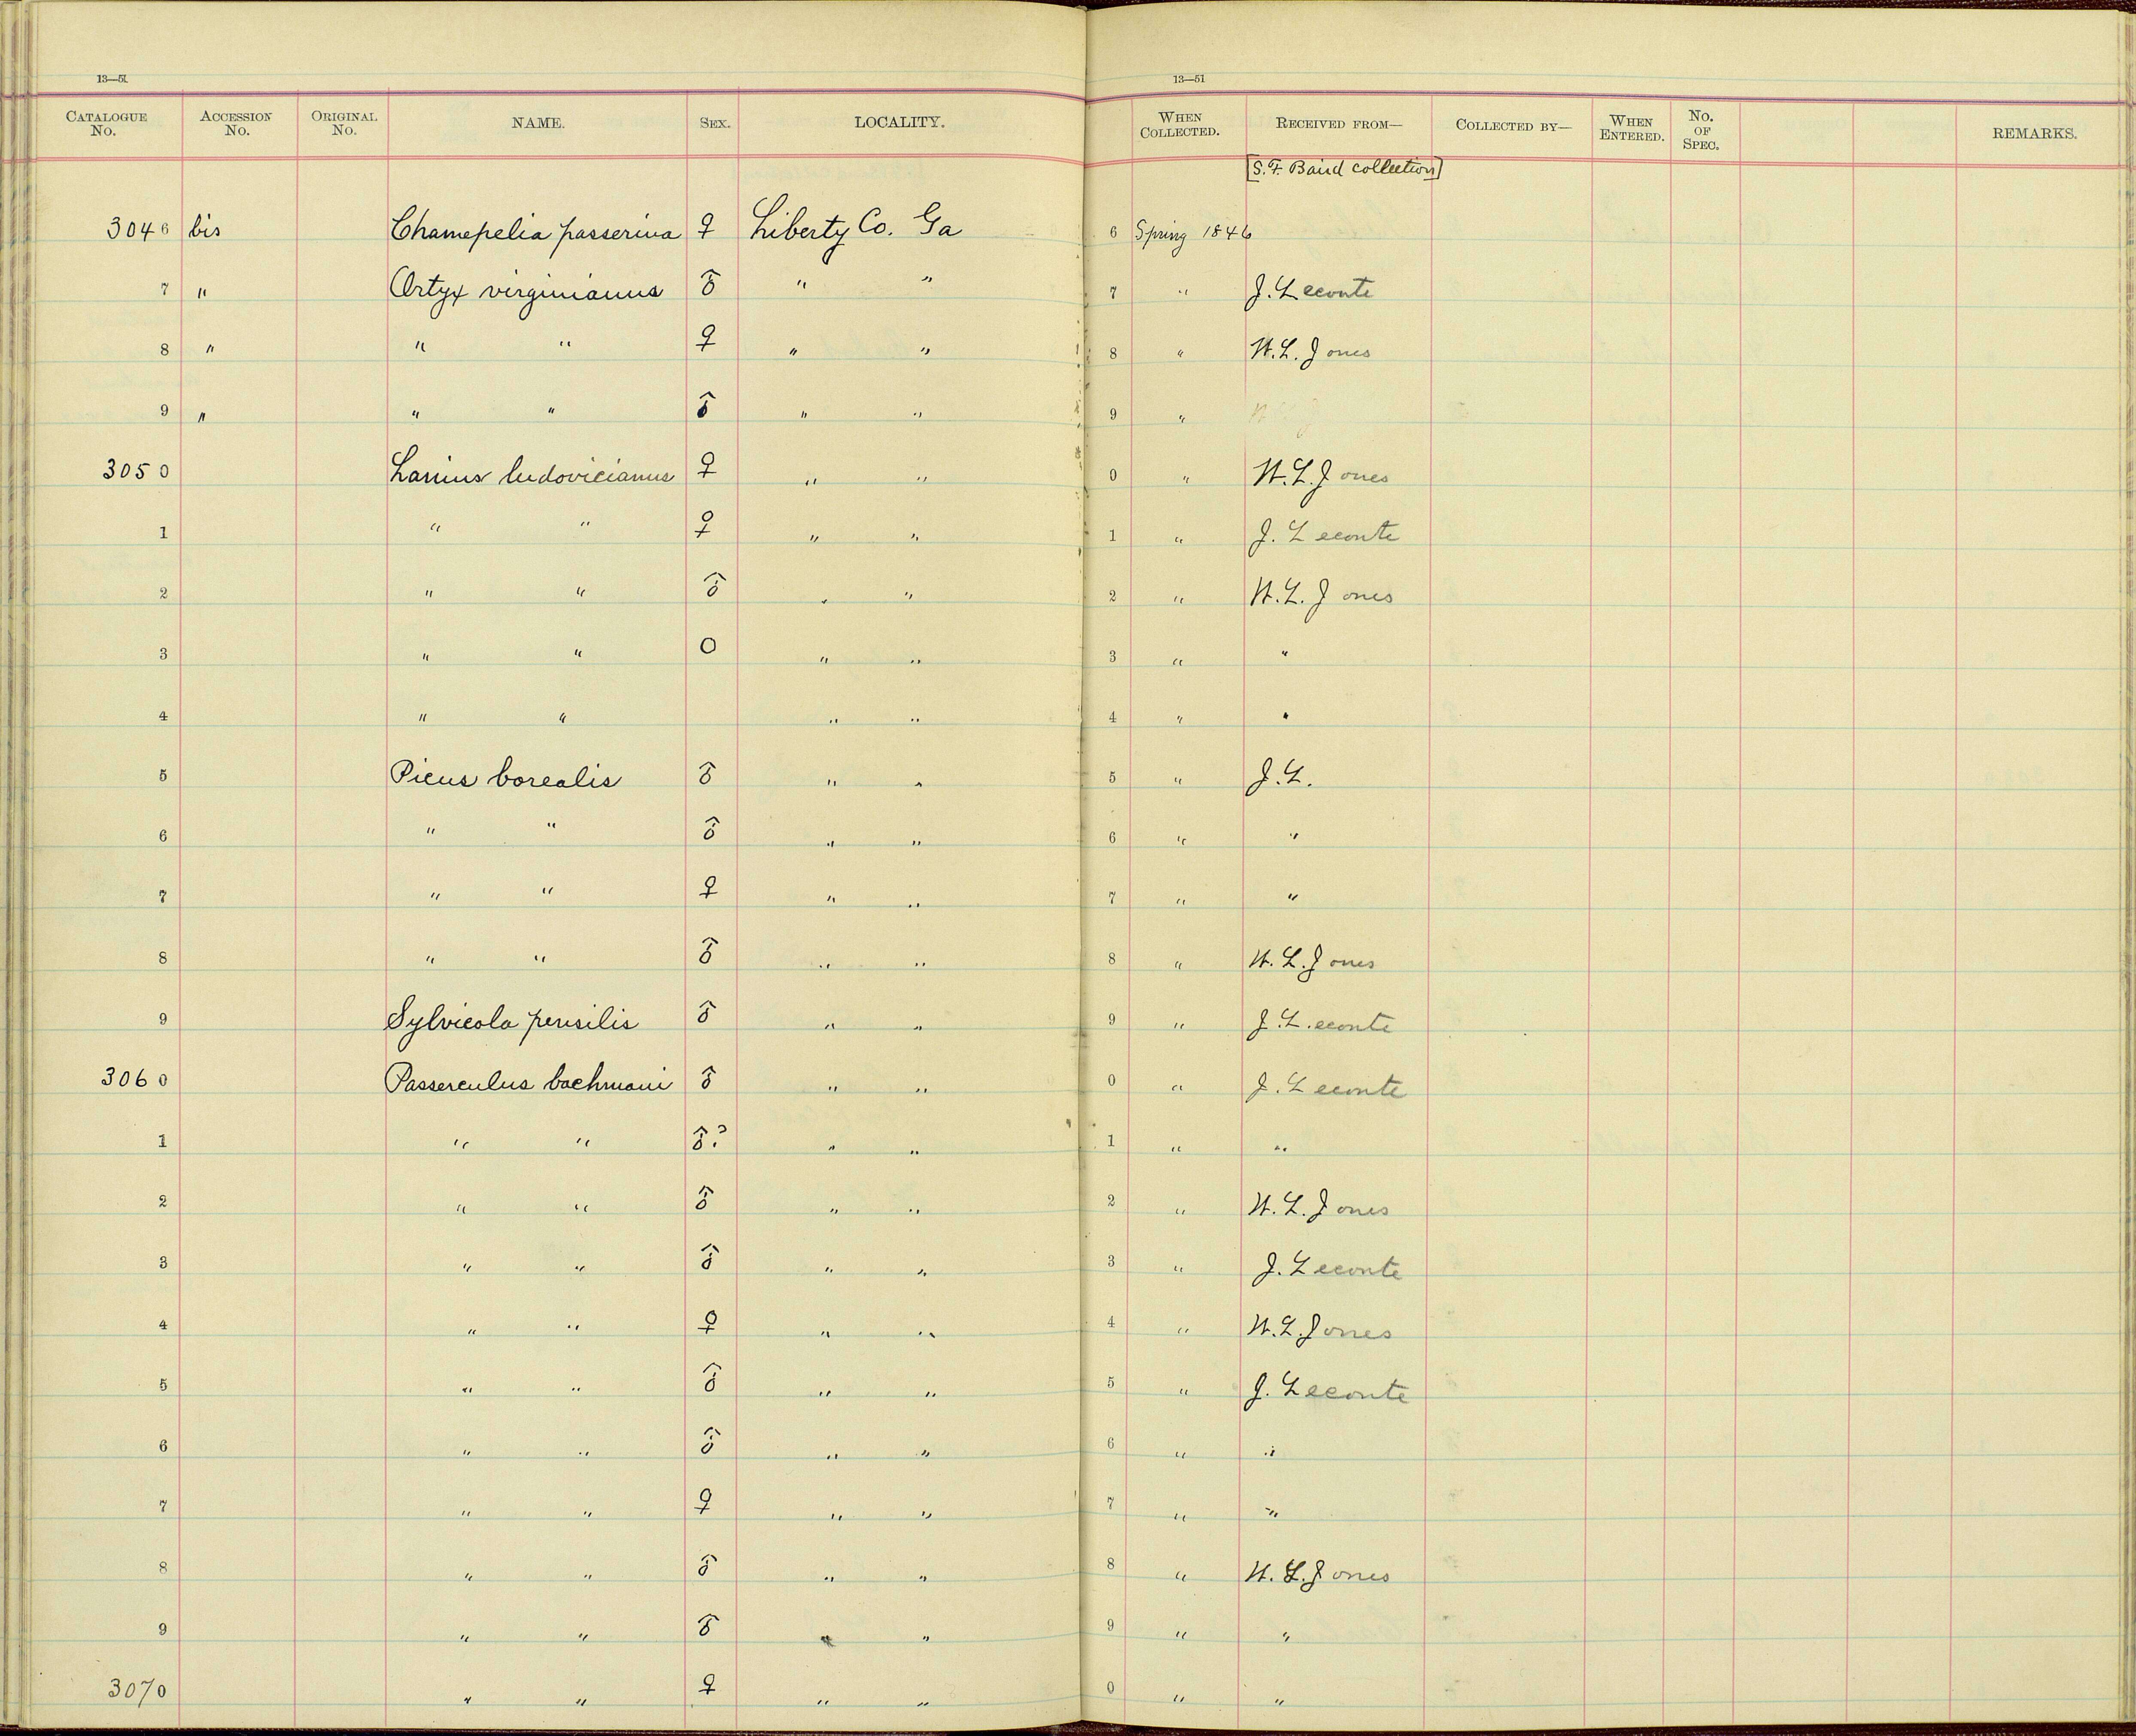 13—51 13—51
CATALOGUE No. ACCESSION No. ORIGINAL No. NAME. SEX. LOCALITY. WHEN COLLECTED. RECEIVED FROM— COLLECTED BY— WHEN ENTERED. No. OF SPEC. REMARKS.
[S. F. Baird collection]
3046 bis Chamepelia passerina ♀ Liberty Co. Ga 6 Spring 1846
7 " Ortyx virginianus ♂ " " 7 " J. Leconte
8 " " " ♀ " " 8 " W. L. Jones
9 " " " ♂ " " 9 "
3050 Lanius ludovicianus ♀ " " 0 " W. L. Jones
1 " " ♀ " " 1 " J. Leconte
2 " " ♂ " " 2 " W. L. Jones
3 " " O " " 3 " "
4 " " " " 4 " "
5 Picus borealis ♂ " " 5 " J. L.
6 " " ♂ " " 6 " "
7 " " ♀ " " 7 " "
8 " " ♂ " " 8 " W. L. Jones
9 Sylvicola pensilis ♂ " " 9 " J. Leconte
3060 Passerculus bachmani ♂ " " 0 " J. Leconte
1 " " ♂? " " 1 " "
2 " " ♂ " " 2 " W. L. Jones
3 " " ♂ " " 3 " J. Leconte
4 " " ♀ " " 4 " W. L. Jones
5 " " ♂ " " 5 " J. Leconte
6 " " ♂ " " 6 " "
7 " " ♀ " " 7 " "
8 " " ♂ " " 8 " W. L. Jones
9 " " ♂ " " 9 " "
3070 " " ♀ " " 0 " "